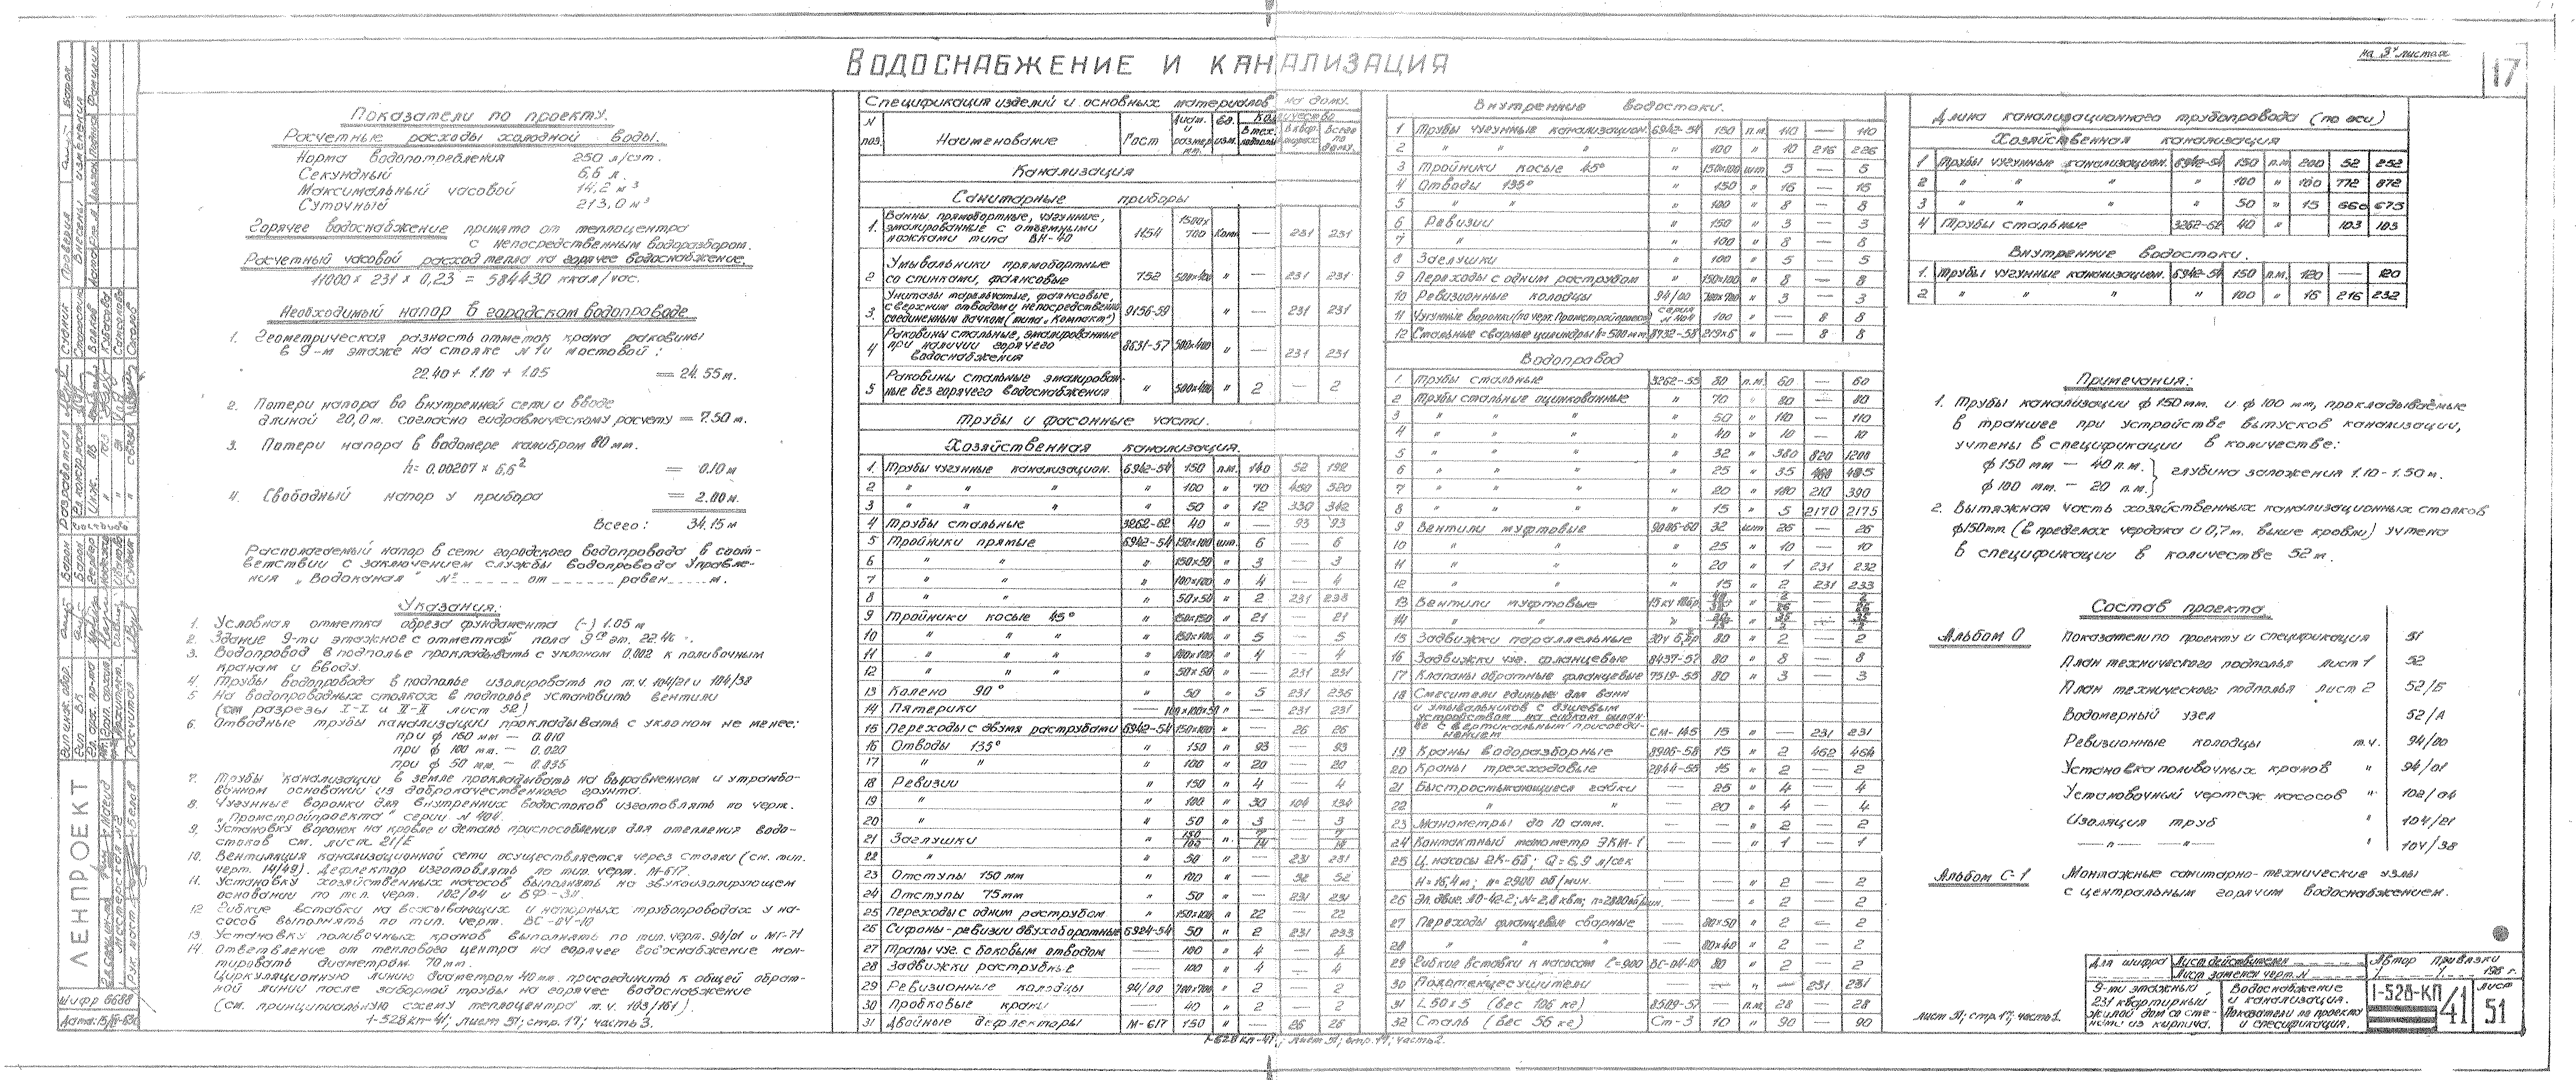 на 3х листах
17
ВОДОСНАБЖЕНИЕ И КАНАЛИЗАЦИЯ
Показатели по проекту.
Расчетные расходы холодной воды.
Норма водопотребления 250 л/сут.
Секундный 6,6 л.
Максимальный часовой 14,2 м³
Суточный 213,0 м³
Горячее водоснабжение принято от теплоцентра
с непосредственным водоразбором.
Расчетный часовой расход тепла на горячее водоснабжение.
11000 × 231 × 0,23 = 584430 ккал/час.
Необходимый напор в городском водопроводе
1. Геометрическая разность отметок крана раковины
в 9-м этаже на стояке N 1 и мостовой:
22.40 + 1.10 + 1.05 = 24.55 м.
2. Потери напора во внутренней сети и вводе
длиной 20,0 м. согласно гидравлическому расчету = 7.50 м.
3. Потери напора в водомере калибром 80 мм.
h = 0,00207 × 6,6² = 0.10 м
4. Свободный напор у прибора = 2.00 м.
Всего: 34.15 м
Располагаемый напор в сети городского водопровода в соот-
ветствии с заключением службы водопровода Управле-
ния „Водоканал" № от равен м.
Указания:
1. Условная отметка обреза фундамента (-) 1.05 м
2. Здание 9-ти этажное с отметкой пола 9го эт. 22.40
3. Водопровод в подполье прокладывать с уклоном 0,002 к поливочным
кранам и вводу.
4. Трубы водопровода в подполье изолировать по т.ч. 104/21 и 104/38
5 На водопроводных стояках в подполье установить вентили
(см разрезы I-I и II-II лист 52)
6. Отводные трубы канализации прокладывать с уклоном не менее:
при ф 150 мм — 0.010
при ф 100 мм. — 0.020
при ф 50 мм. — 0.035
7. Трубы канализации в земле прокладывать на выравненном и утрамбо-
ванном основании из доброкачественного грунта.
8. Чугунные воронки для внутренних водостоков изготовлять по черт.
„Промстройпроекта" серии N 404.
9. Установку воронок на кровле и деталь приспособления для отепления водо-
стоков см. лист 21/Е
10. Вентиляция канализационной сети осуществляется через стояки (см. тип.
черт. 14/49). Дефлектор изготовлять по тип. черт. М-617.
11. Установку хозяйственных насосов выполнять на звукоизолирующем
основании по тип. черт. 102/04 и
12 Гибкие вставки на всасывающих и напорных трубопроводах у на-
сосов выполнять по тип. черт. ВС-04-10
13. Установку поливочных кранов выполнять по тип. черт. 94/01 и МГ-71
14. Ответвление от теплового центра на горячее водоснабжение мон-
тировать диаметром 70 мм.
Циркуляционную линию диаметром 40 мм. присоединить к общей обрат-
ной линии после заборной трубы на горячее водоснабжение
(см. принципиальную схему теплоцентра т.ч. 103/161).
1-528КП-41; лист 51; стр. 17; часть 3.
Спецификация изделий и основных материалов на дому.
N поз. Наименование Гост Диам. и размер мм. Ед. изм. Количество В тех. подполье В квартирах Всего по дому.
Канализация
Санитарные приборы
1. Ванны прямобортные, чугунные, эмалированные с отъемными ножками типа ВН-40 1154 1500х700 Комп — 231 231
2 Умывальники прямобортные со спинками, фаянсовые 752 500×400 " — 231 231
3. Унитазы тарельчатые, фаянсовые, с верхним отводом и непосредственно соединенным бачком (типа „Компакт") 9156-59 " — 231 231
4 Раковины стальные, эмалированные при наличии горячего водоснабжения 8631-57 500×400 " — 231 231
5 Раковины стальные эмалирован- ные без горячего водоснабжения " 500×400 " 2 — 2
Трубы и фасонные части.
Хозяйственная канализация.
1. Трубы чугунные канализацион. 6942-54 150 п.м. 140 52 192
2 " " " " 100 " 70 450 520
3 " " " " 50 " 12 330 342
4 Трубы стальные 3262-62 40 " — 93 93
5 Тройники прямые 6942-54 150×100 шт. 6 — 6
6 " " " 150×50 " 3 — 3
7 " " " 100×100 " 4 — 4
8 " " " 50×50 " 2 231 233
9 Тройники косые 45° " 150×150 " 21 — 21
10 " " " " 150×100 " 5 — 5
11 " " " " 100×100 " 4 — 4
12 " " " " 50×50 " — 231 231
13 Колено 90° " 50 " 5 231 236
14 Пятерики — 100×100×50 " — 231 231
15 Переходы с двумя раструбами 6942-54 150×100 " — 26 26
16 Отводы 135° " 150 " 93 — 93
17 " " " 100 " 20 — 20
18 Ревизии " 150 " 4 — 4
19 " " 100 " 30 104 134
20 " " 50 " 3 — 3
21 Заглушки " 150 100 " 7 14 — 7 14
22 " " 50 " — 231 231
23 Отступы 150 мм " 100 " — 52 52
24 Отступы 75 мм " 50 " — 231 231
25 Переходы с одним раструбом " 150×100 " 22 — 22
26 Сифоны-ревизии двухоборотные 6924-54 50 " 2 231 233
27 Трапы чуг. с боковым отводом 100 " 4 — 4
28 Задвижки раструбные — 100 " 4 — 4
29 Ревизионные колодцы 94/00 700×700 " 2 — 2
30 Пробковые краны 40 " 2 — 2
31 Двойные дефлекторы М-617 150 " — 26 26
1-528КП-41; лист 51; стр. 17; часть 2.
Внутренние водостоки.
1 Трубы чугунные канализацион. 6942-54 150 п.м. 110 — 110
2 " " " " 100 " 10 216 226
3 Тройники косые 45° " 150×100 шт 5 — 5
4 Отводы 135° " 150 " 16 — 16
5 " " " 100 " 8 — 8
6 Ревизии " 150 " 3 — 3
7 " " 100 " 8 — 8
8 Заглушки " 100 " 5 — 5
9 Переходы с одним раструбом " 150×100 " 8 — 8
10 Ревизионные колодцы 94/00 700×700 " 3 — 3
11 Чугунные воронки (по черт. Промстройпроекта) серия N 404 100 " — 8 8
12 Стальные сварные цилиндры h=500 мм. 8732-58 219×6 " — 8 8
Водопровод
1 Трубы стальные 3262-55 80 п.м. 60 — 60
2 Трубы стальные оцинкованные " 70 " 80 — 80
3 " " " " 50 " 110 — 110
4 " " " " 40 " 10 — 10
5 " " " " 32 " 380 820 1200
6 " " " " 25 " 35 460 495
7 " " " " 20 " 180 210 390
8 " " " " 15 " 5 2170 2175
9 Вентили муфтовые 9086-60 32 шт 26 — 26
10 " " " 25 " 10 — 10
11 " " " 20 " 1 231 232
12 " " " 15 " 2 231 233
13 Вентили муфтовые
14 " "
15 Задвижки параллельные 30ч 6бр 80 " 2 — 2
16 Задвижки чуг. фланцевые 8437-57 80 " 8 — 8
17 Клапаны обратные фланцевые 7519-55 80 " 3 — 3
18 Смесители единые для ванн и умывальников с душевым устройством на гибком шланге с вертикальным присоединением СМ-145 15 " — 231 231
19 Краны водоразборные 8906-58 15 " 2 462 464
20 Краны трехходовые 2844-55 15 " 2 — 2
21 Быстросмыкающиеся гайки — 25 " 4 — 4
22 " " 20 " 4 — 4
23 Манометры до 10 атм. — — " 2 — 2
24 Контактный манометр ЭКМ-1 — — " 1 — 1
25 Ц. насосы 2К-6б; Q = 6,9 л/сек
Н = 16,4 м; n = 2900 об/мин. — " 2 — 2
26 Эл. двиг. АО-42-2; N=2,8 квт; n=2880 об/мин. — " 2 — 2
27 Переходы фланцевые сварные — 80×50 " 2 — 2
28 " " " — 80×40 " 2 — 2
29 Гибкие вставки к насосам ℓ=900 ВС-04-10 80 " 2 — 2
30 Полотенцесушители — — " — 231 231
31 L 50×5 (вес 106 кг) 8509-57 п.м. 28 28
32 Сталь (вес 56 кг) Ст-3 10 " 90 — 90
Длина канализационного трубопровода (по оси)
Хозяйственная канализация
1 Трубы чугунные канализацион. 6942-54 150 п.м. 200 52 252
2 " " " " 100 " 100 772 872
3 " " " " 50 " 15 660 675
4 Трубы стальные 3262-62 40 " 103 103
Внутренние водостоки.
1. Трубы чугунные канализацион. 6942-54 150 п.м. 120 — 120
2 " " " " 100 " 16 216 232
Примечания:
1. Трубы канализации ф 150 мм. и ф 100 мм, прокладываемые
в траншее при устройстве выпусков канализации,
учтены в спецификации в количестве:
ф 150 мм — 40 п.м.
ф 100 мм. — 20 п.м.
глубина заложения 1.10-1.50 м.
2. Вытяжная часть хозяйственных канализационных стояков
ф 150 мм (в пределах чердака и 0,7 м. выше кровли) учтена
в спецификации в количестве 52 м.
Состав проекта
Альбом 0 Показатели по проекту и спецификация 51
План технического подполья лист 1 52
План технического подполья лист 2 52/Б
Водомерный узел 52/А
Ревизионные колодцы т.ч. 94/00
Установка поливочных кранов " 94/01
Установочный чертеж насосов " 102/04
Изоляция труб " 104/21
—"— —"— " 104/38
Альбом С-1 Монтажные санитарно-технические узлы
с центральным горячим водоснабжением.
лист 51; стр. 17; часть 1.
Для шифра
Лист действителен
Лист заменен черт. N
Автор привязки
196 г.
9-ти этажный
231 квартирный
жилой дом со сте-
нами из кирпича.
Водоснабжение
и канализация.
Показатели по проекту
и спецификация.
1-528-КП
41
лист
51
ЛЕНПРОЕКТ
Шифр 6688